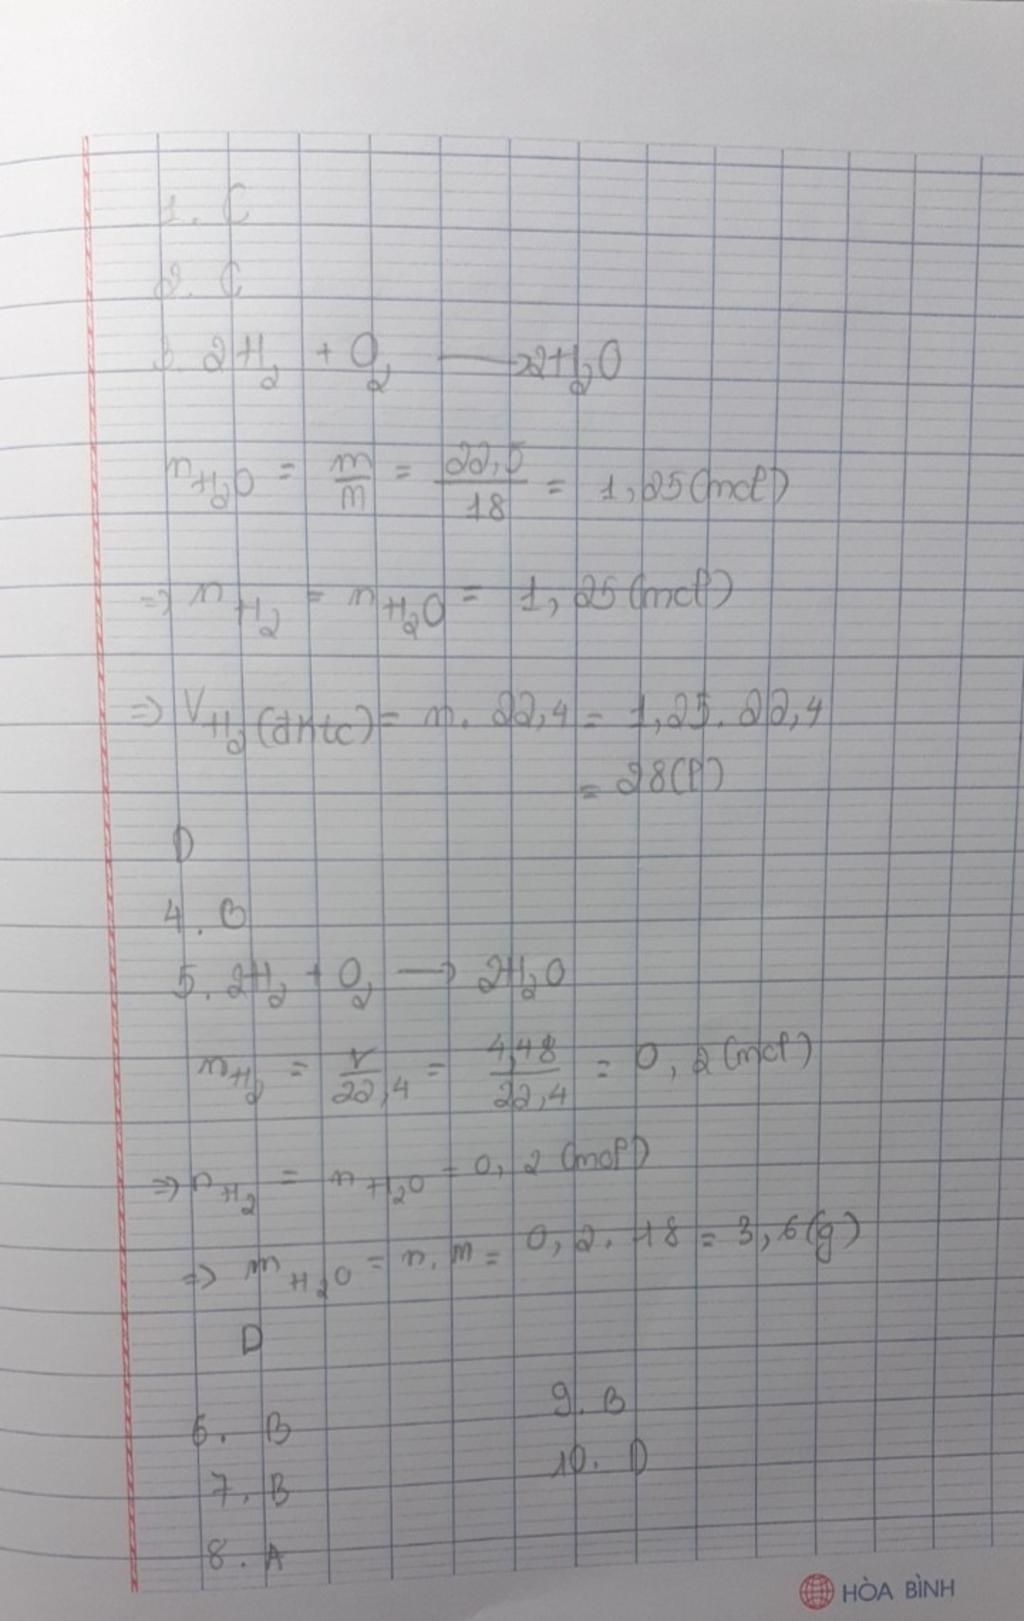 1. C
2. C
3. 2H₂ + O₂ ⟶ 2H₂O
n_H₂O = m/M = 22,5/18 = 1,25 (mol)
=> n_H₂ = n_H₂O = 1,25 (mol)
=> V_H₂ (đktc) = n. 22,4 = 1,25. 22,4
= 28 (l)
D
4. B
5. 2H₂ + O₂ ⟶ 2H₂O
n_H₂ = V/22,4 = 4,48/22,4 = 0,2 (mol)
=> n_H₂ = n_H₂O = 0,2 (mol)
=> m_H₂O = n. M = 0,2. 18 = 3,6 (g)
D
6. B
7. B
8. A
9. B
10. D
HÒA BÌNH